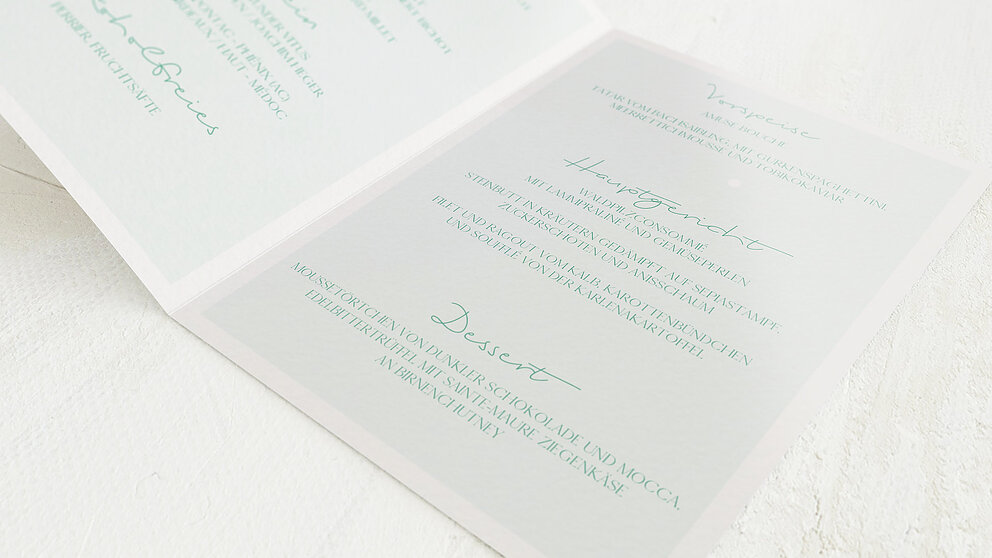 PONTAC - PHÉNIX (AC)
BORDEAUX / HAUT - MÉDOC
Alkoholfreies
PERRIER, FRUCHTSÄFTE
Vorspeise
AMUSE BOUCHE
TATAR VOM BACHSAIBLING, MIT GURKENSPAGHETTINI,
MEERRETTICHMOUSSE UND TOBIKOKAVIAR
Hauptgericht
WALDPILZCONSOMMÉ
MIT LAMMPRALINÉ UND GEMÜSEPERLEN
STEINBUTT IN KRÄUTERN GEDÄMPFT AUF SEPIASTAMPF,
ZUCKERSCHOTEN UND ANISSCHAUM
FILET UND RAGOUT VOM KALB, KAROTTENBÜNDCHEN
UND SOUFFLÉ VON DER KARLENAKARTOFFEL
Dessert
MOUSSETÖRTCHEN VON DUNKLER SCHOKOLADE UND MOCCA,
EDELBITTERTRÜFFEL MIT SAINTE-MAURE ZIEGENKÄSE
AN BIRNENCHUTNEY